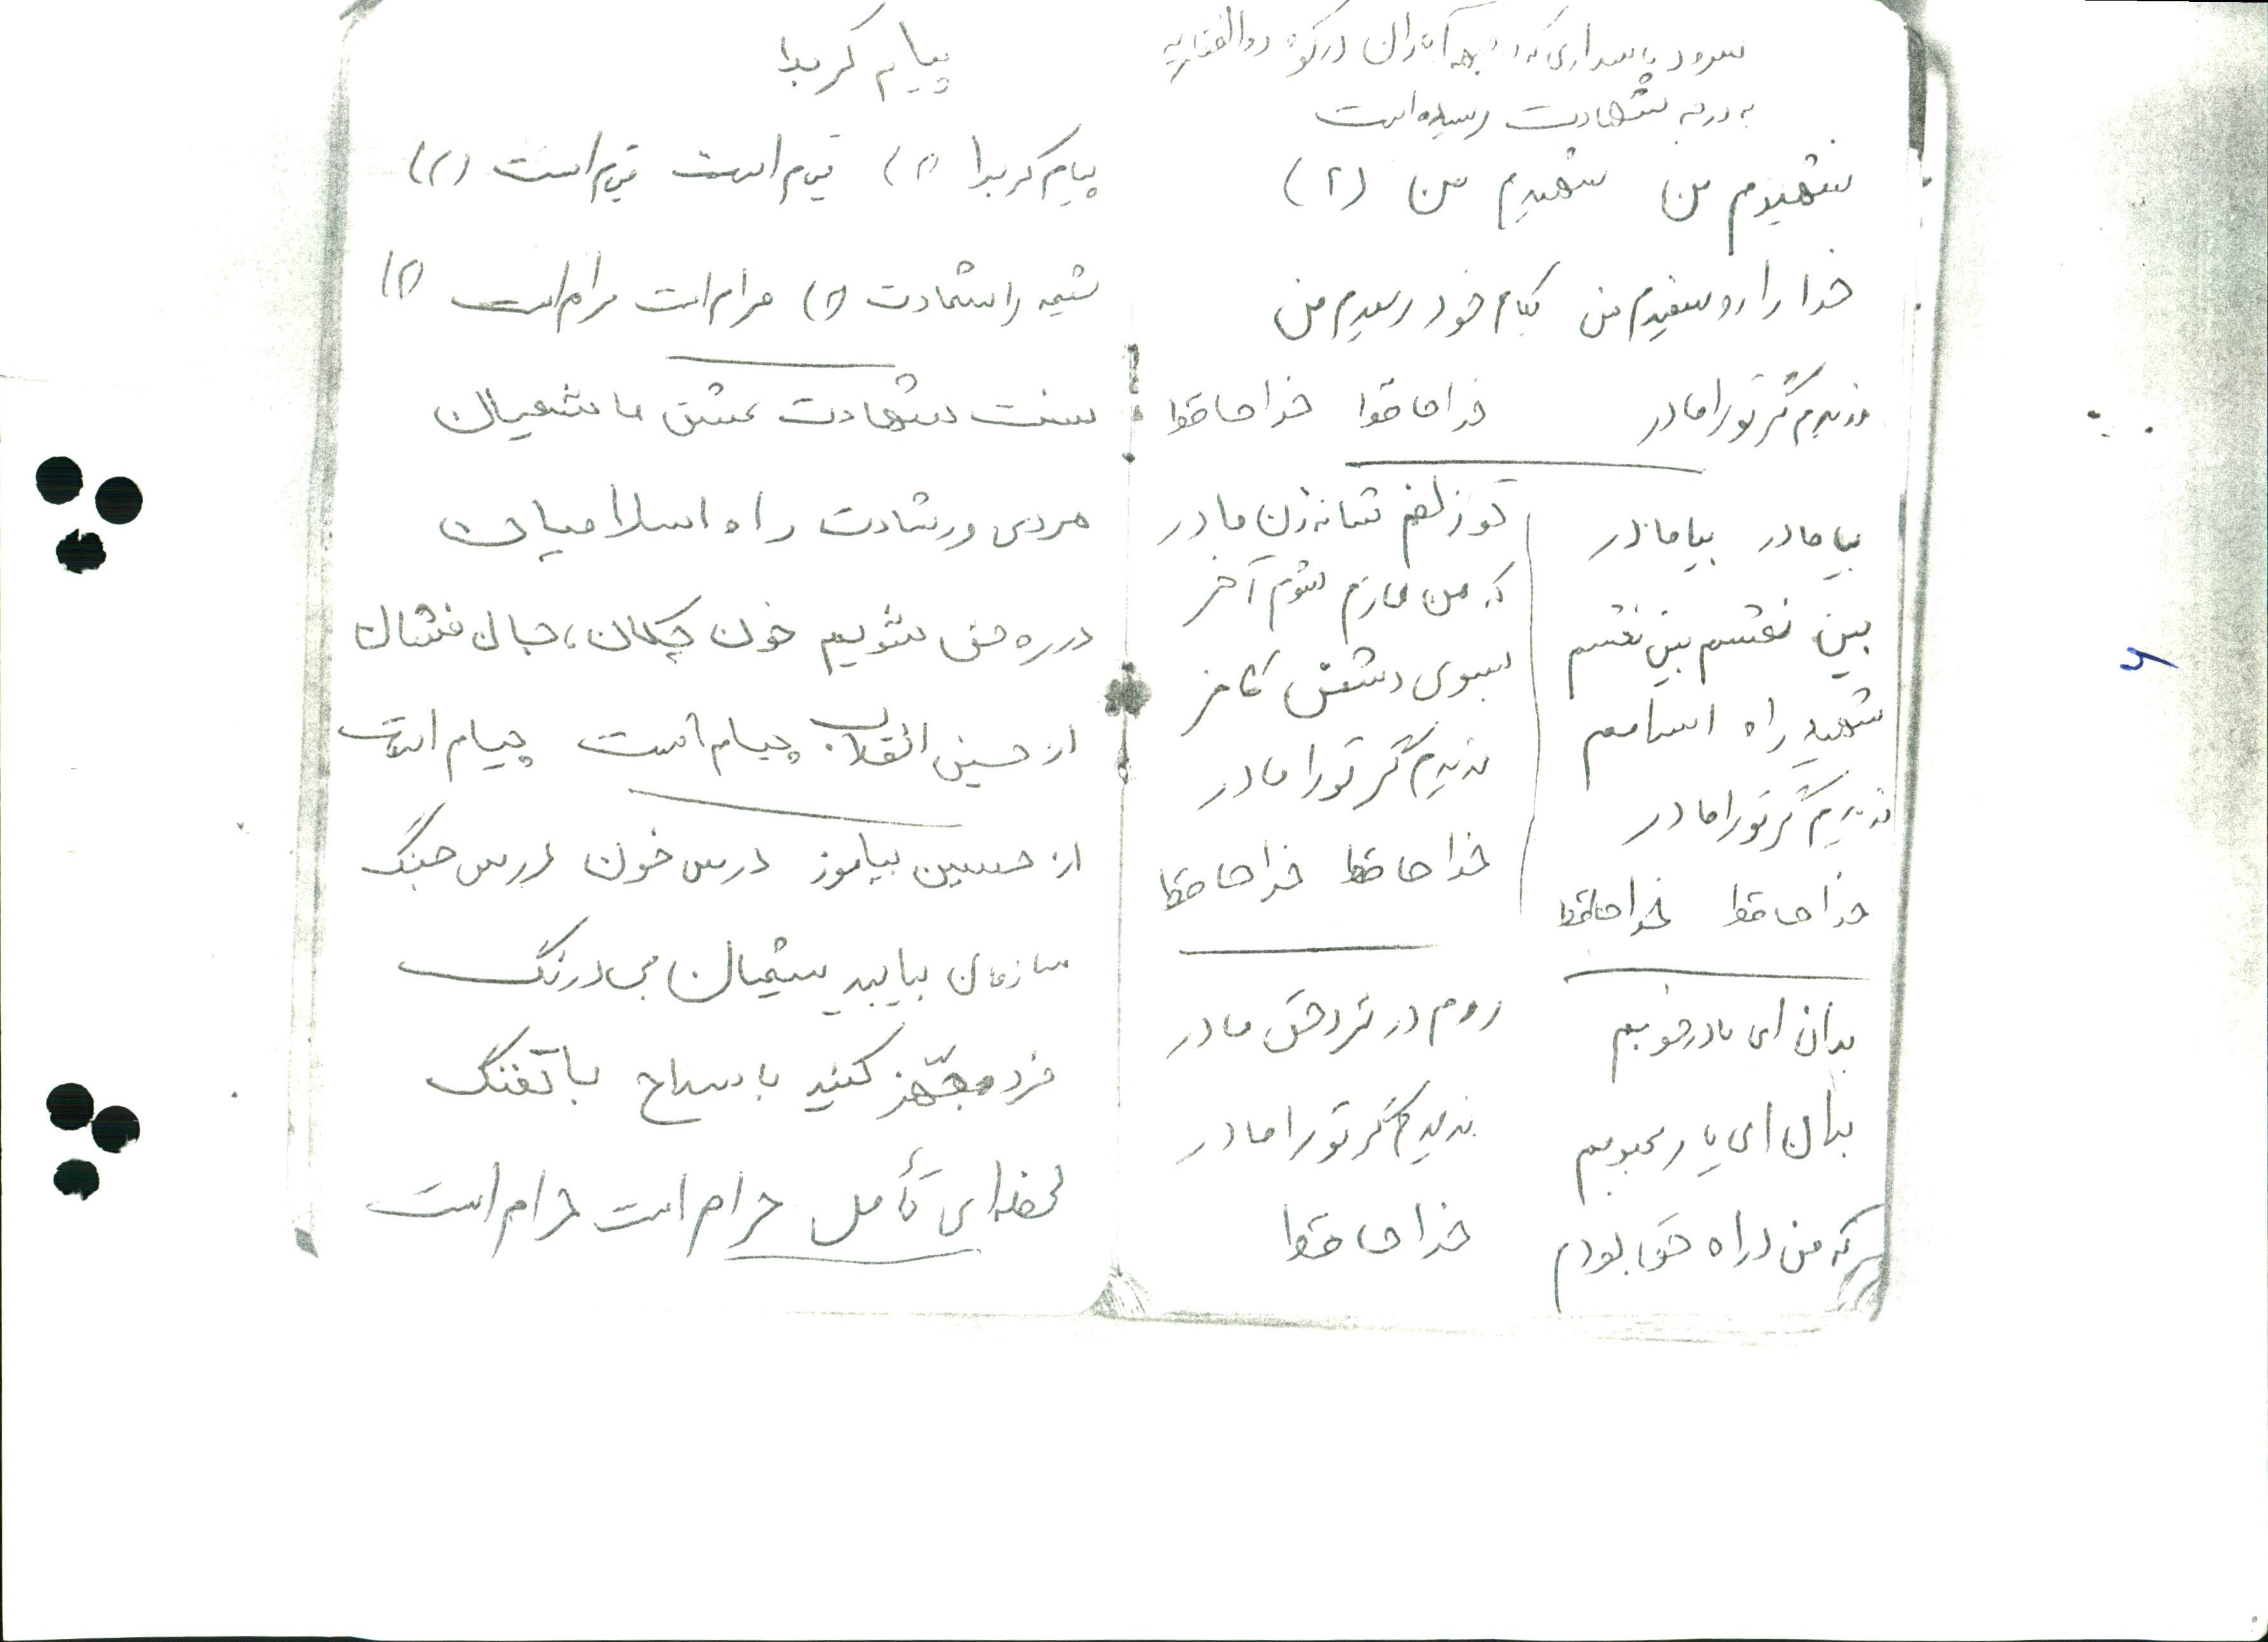 سرود پاسداری که در جبهه آبادان در کوی ذوالفقاریه
به درجه شهادت رسیده است
شهیدم من شهیدم من (۲)
خدا را رو سفیدم من بکام خود رسیدم من
ندیدم گر تو را مادر خداحافظ خداحافظ
بیا مادر بیا مادر
ببین نعشم ببین نعشم
شهید راه اسلامم
ندیدم گر تو را مادر
خداحافظ خداحافظ
بدان ای مادر خوبم
بدان ای یار محبوبم
که من در راه حق بودم
تو زلفم شانه زن مادر
که من عازم شوم آخر
بسوی دشمن کافر
ندیدم گر تو را مادر
خداحافظ خداحافظ
روم در نزد حق مادر
ندیدم گر تو را مادر
خداحافظ
پیام کربلا
پیام کربلا (۲) قیام است قیام است (۲)
شیعه را شهادت (۲) مرام است مرام است (۲)
سنت شهادت عشق ما شیعیان
مردی و رشادت راه اسلامیان
در ره حق شویم خون چکان، جان فشان
از حسین انقلاب پیام است پیام است
از حسین بیاموز درس خون درس جنگ
سازمان بیابید شیعیان بی درنگ
فرد مجهز کنید با سلاح با تفنگ
لحضه ای تأمل حرام است حرام است